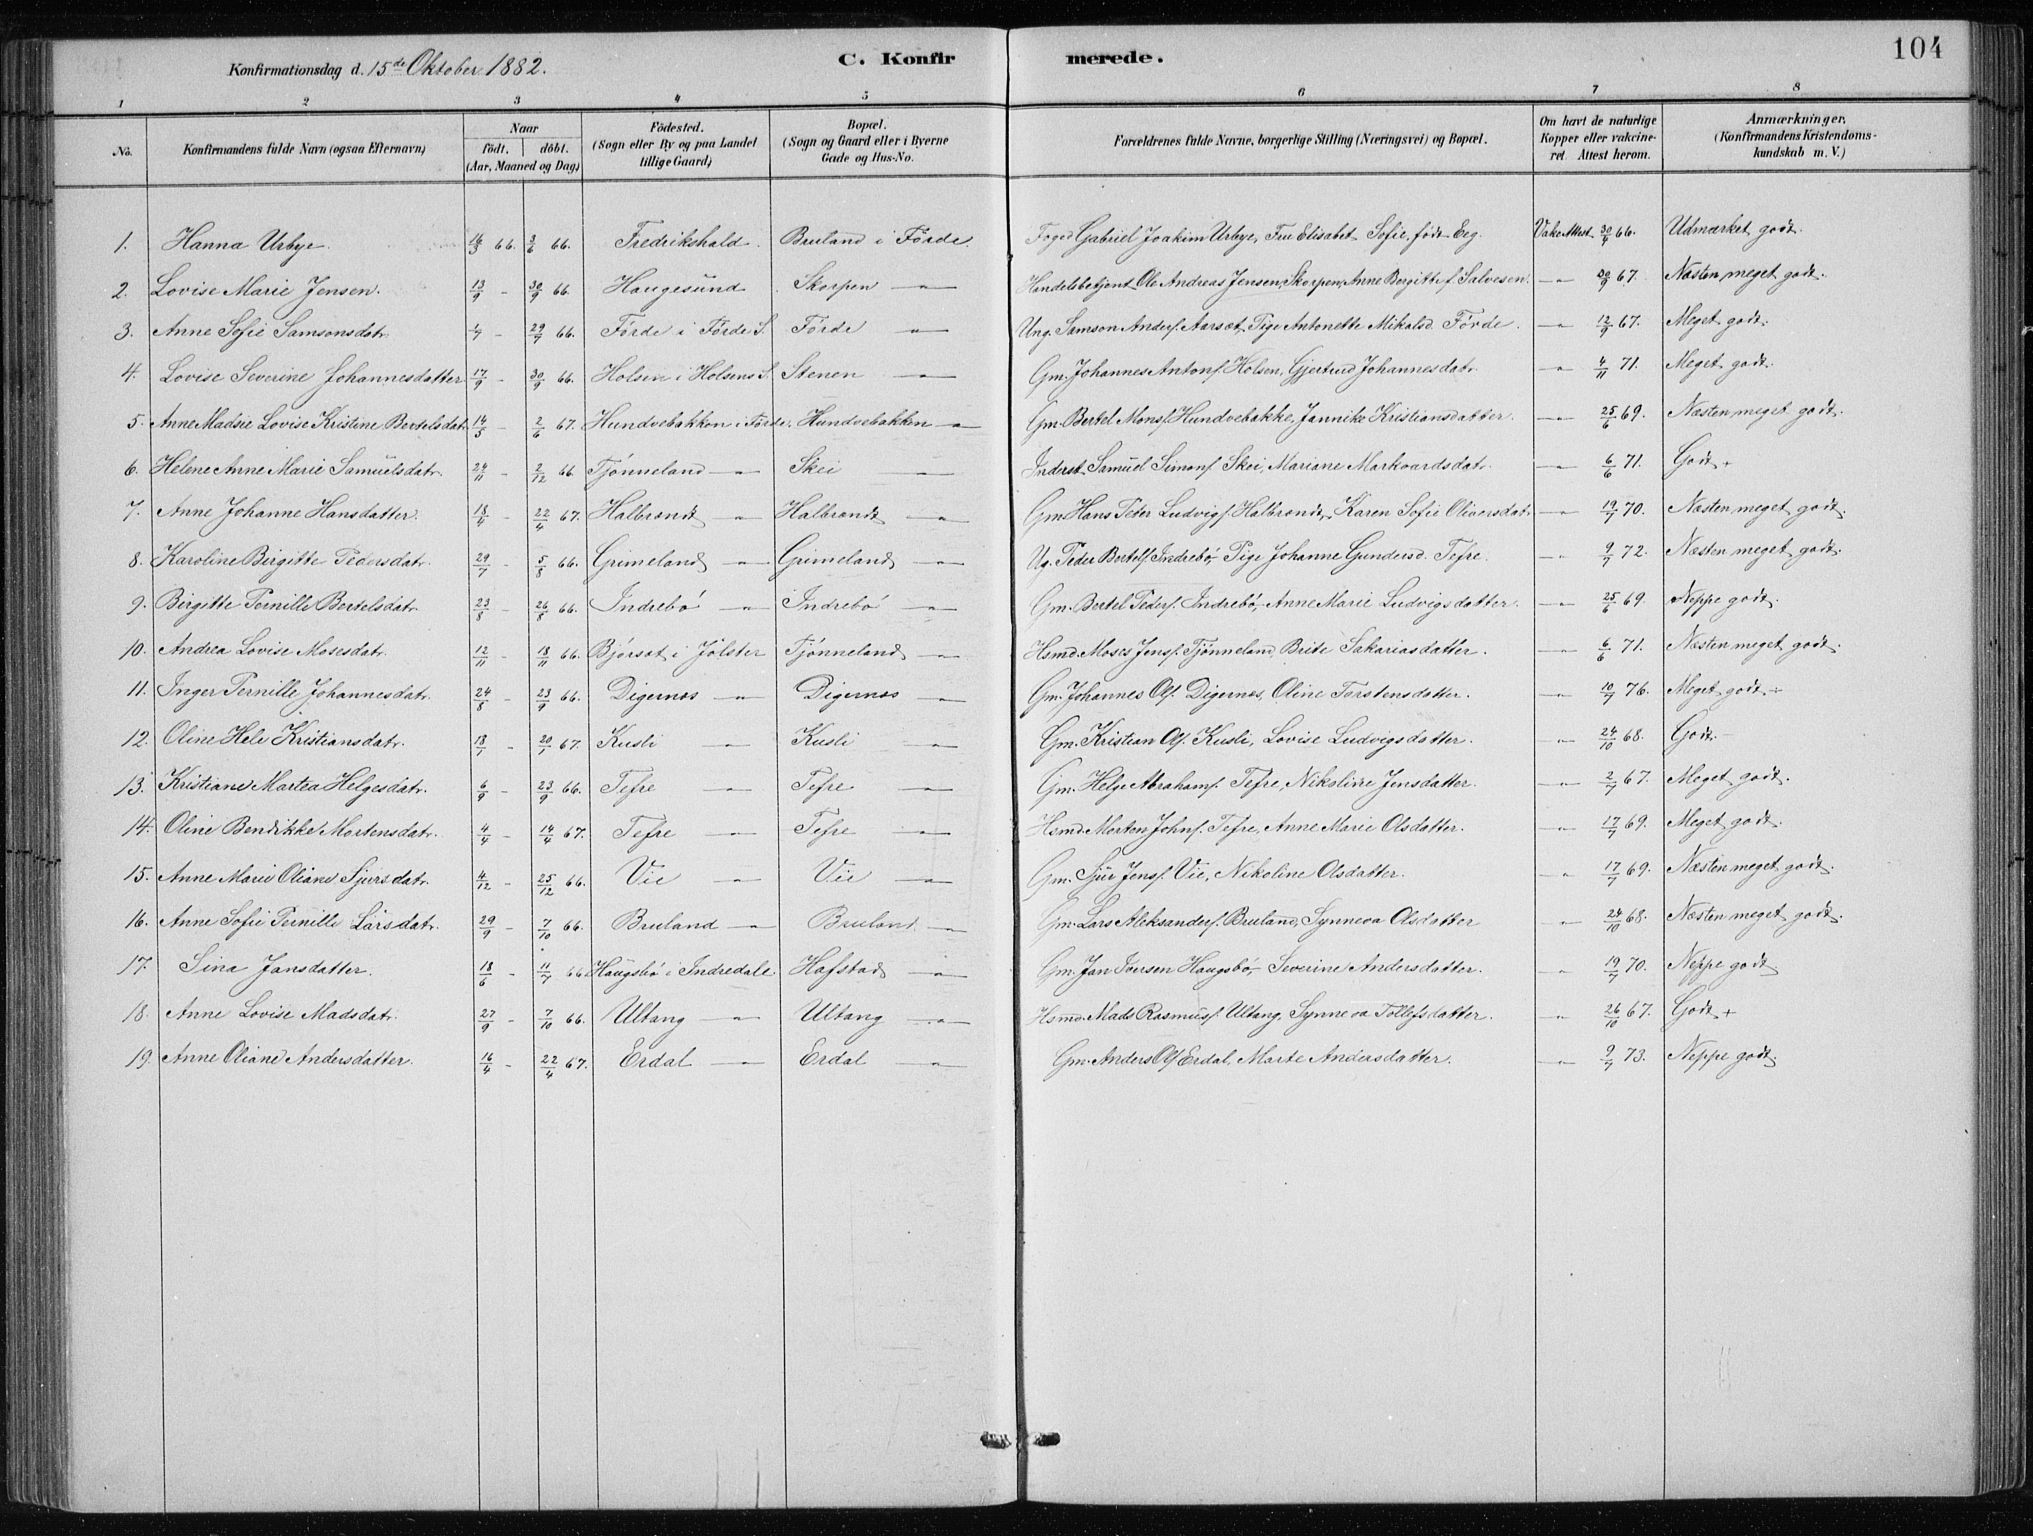 Konfirmationsdag d. 15de Oktober 1882.
C. Konfirmerede.
104
1 2 3 4 5 6 7 8
No.
Konfirmandens fulde Navn (ogsaa Efternavn)
Naar
födt. döbt.
(Aar, Maaned og Dag)
Födested.
(Sogn eller By og paa Landet
tillige Gaard)
Bopæl.
(Sogn og Gaard eller i Byerne
Gade og Hus-No.
Forældrenes fulde Navne, borgerlige Stilling (Næringsvei) og Bopæl.
Om havt de naturlige
Kopper eller vakcine-
ret. Attest herom.
Anmærkninger,
(Konfirmandens Kristendoms-
kundskab m. V.)
1. Hanna Urbye 14/3 66. 3/6 66. Fredrikshald. Bruland i Förde Foged Gabriel Joakim Urbye, Fru Elisabet Sofie, födt Eeg. Vakc Attest 30/4 66. Udmærket godt.
2. Lovise Marie Jensen. 13/9 - 30/9 66. Haugesund Skorpen -"- Handelsbetjent Ole Andreas Jensen, Skorpen, Anne Bergitte f. Salvesen. -"- 30/9 67. Næsten meget godt.
3. Anne Sofie Samsonsdatr. 4/7 - 29/7 66. Förde i Förde S. Förde -"- Ung. Samson Andersf. Aarsæt, Pige Antonette Mikalsd. Förde. -"- 12/9 67. Meget godt.
4. Lovise Severine Johannesdatter 17/9 - 30/9 66. Holsen i Holsens S. Stenen -"- Gm. Johannes Antonf. Holsen, Gjertrud Johannesdatr. -"- 4/11 71. Meget godt.
5. Anne Madsie Lovise Kristine Bertelsdatr. 14/5 - 2/6 67. Hundvebakken i Förde. Hundvebakken -"- Gm. Bertel Monsf. Hundvebakke, Jannike Kristiansdatter. -"- 25/6 69. Næsten meget godt.
6. Helene Anne Marie Samuelsdatr. 24/11 - 2/12 66. Tjönneland -"- Skei -"- Inderst Samuel Simonf. Skei, Mariane Markvardsdatr. -"- 6/6 71. Godt +
7. Anne Johanne Hansdatter. 18/4 - 22/4 67. Halbrendt -"- Halbrendt -"- Gm. Hans Peter Ludvigf. Halbrendt, Karen Sofie Oliversdatr. -"- 19/7 70. Næsten meget godt.
8. Karoline Birgitte Pedersdatr. 29/7 - 5/8 66. Grimeland -"- Grimeland -"- Ug. Peder Bertelf. Indrebö, Pige Johanne Gundersd. Tefre. -"- 9/7 72. Næsten meget godt.
9. Birgitte Pernille Bertelsdatr. 23/8 - 26/8 66. Indrebö -"- Indrebö -"- Gm. Bertel Pederf. Indrebö, Anne Marie Ludvigsdatter. -"- 25/6 69. Neppe godt.
10. Andrea Lovise Mosesdatr. 12/11 - 18/11 66. Björsæt i Jölster Tjönneland -"- Hsmd. Moses Jensf. Tjönneland, Brite Sakariasdatter. -"- 6/6 71. Næsten meget godt.
11. Inger Pernille Johannesdatr. 24/8 - 23/9 66. Digernes -"- Digernes -"- Gm. Johannes Olf. Digernes, Oline Torstensdatter. -"- 10/7 76. Meget godt ÷
12. Oline Heli Kristiansdatr. 13/1 - 20/1 67. Kusli -"- Kusli -"- Gm. Kristian Olf. Kusli, Lovise Ludvigsdatter. -"- 24/10 68. Godt. -
13. Kristiane Martea Helgesdatr. 6/9 - 23/9 66. Tefre -"- Tefre -"- Gm. Helge Abrahamf. Tefre, Nikoline Jensdatter. -"- 2/7 67. Meget godt.
14. Oline Bendikke Mortensdatr. 4/4 - 14/4 67. Tefre -"- Tefre -"- Hsmd. Morten Johnf. Tefre, Anne Marie Olsdatter. -"- 17/7 69. Meget godt.
15. Anne Marie Oliane Sjursdatr. 4/12 - 25/12 66. Vie -"- Vie -"- Gm. Sjur Jensf. Vie, Nikoline Olsdatter. " 17/7 69. Næsten meget godt.
16. Anne Sofie Pernille Larsdatr. 29/9 - 7/10 66. Bruland -"- Bruland -"- Gm. Lars Aleksanderf. Bruland, Synneva Olsdatter -"- 24/10 68. Næsten meget godt.
17. Sina Jansdatter. 18/6 - 11/7 66 Haugsbö i Indredale Hafstad -"- Gm. Jan Iversen Haugsbö, Severine Andersdatter. -"- 19/7 70. Neppe godt
18. Anne Lovise Madsdatr. 27/9 - 7/10 66. Ultang -"- Ultang -"- Hsmd. Mads Rasmusf. Ultang, Synneva Tollefsdatter. -"- 26/10 67. Godt +
19. Anne Oliane Andersdatter. 16/4 - 22/4 67. Erdal -"- Erdal -"- Gm. Anders Olf. Erdal, Marte Andersdatter. -"- 9/7 73. Neppe godt.